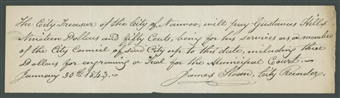 The City Treasurer of the City of Nauvoo, will pay Gustavus Hills
Nineteen Dollars and fifty Cents, being for his services as a member
of the City Council of said City up to this date, including three
Dollars for engraving a Seal for the Municipal Court.
January 30th 1843.
James Sloan, City Recorder